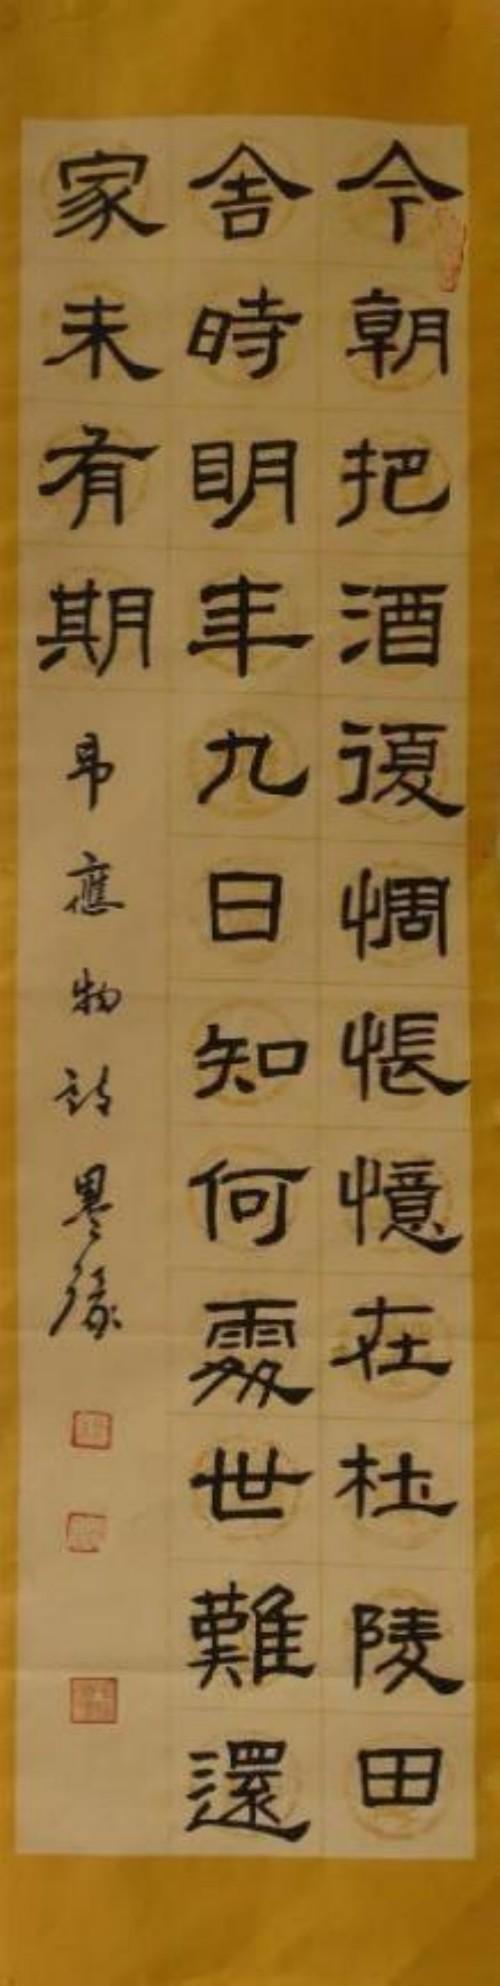 今朝把酒復惆悵憶在杜陵田
舍時明年九日知何處世難還
家未有期韋應物詩